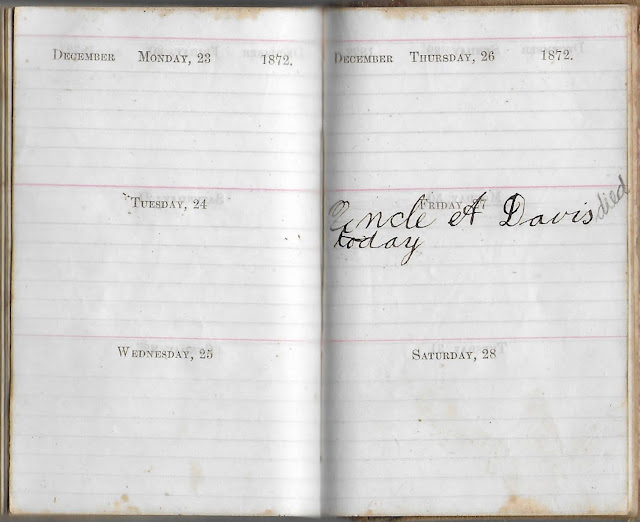 DECEMBER MONDAY, 23 1872.
TUESDAY, 24
WEDNESDAY, 25
DECEMBER THURSDAY, 26 1872.
FRIDAY, 27
Uncle A Davis died
today
SATURDAY, 28